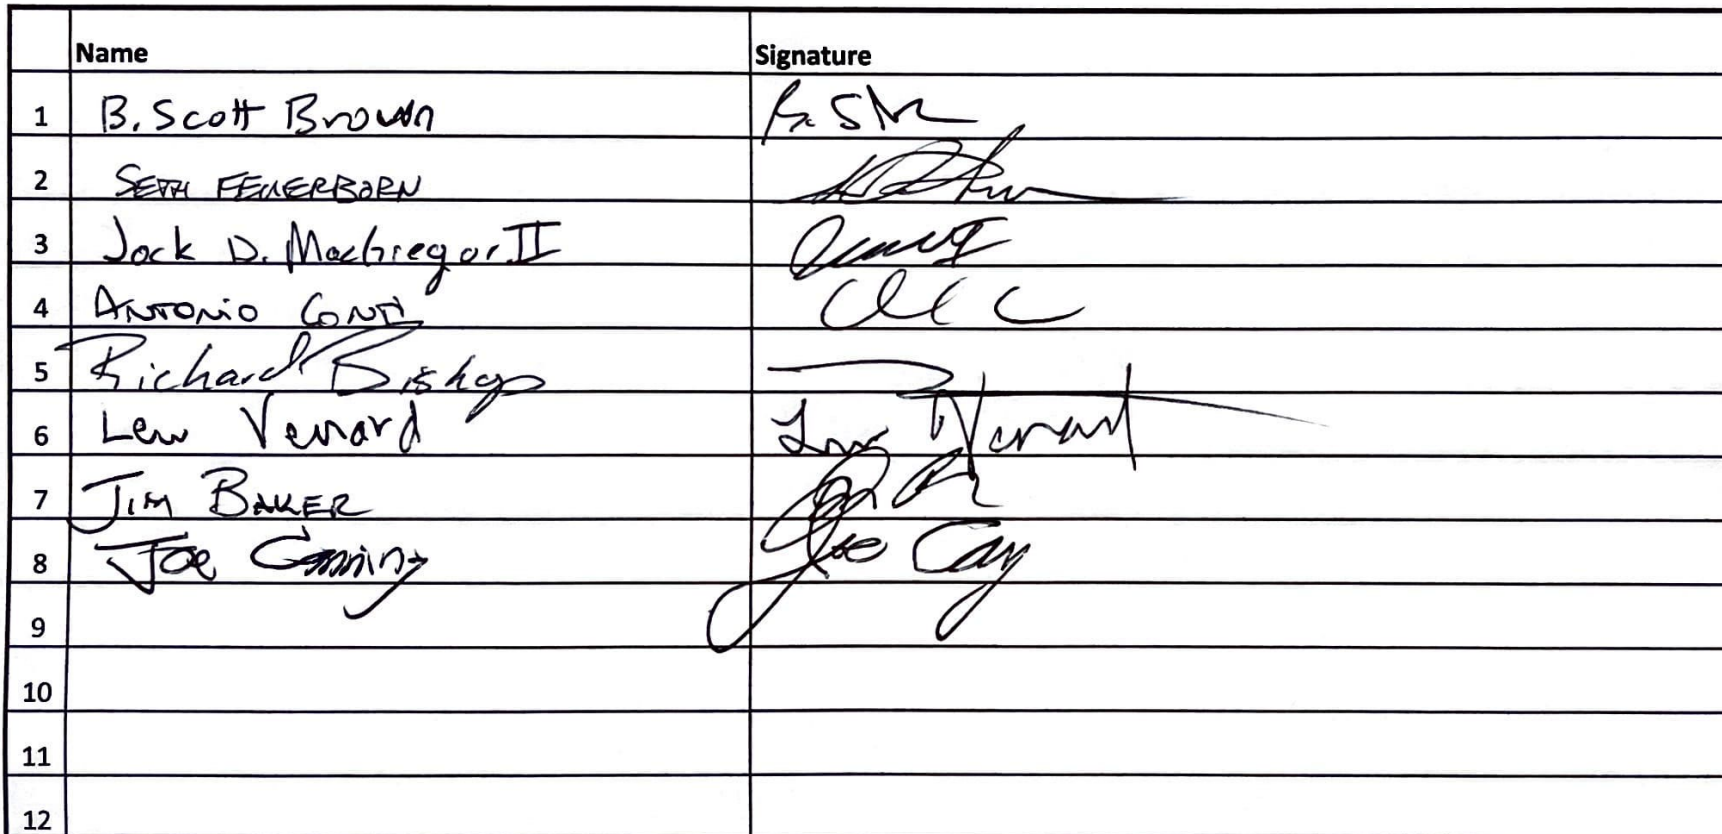 Name Signature
1 B. Scott Brown
2 SETH FEUERBORN
3 Jock D. MacGregor II
4 ANTONIO CONTI
5 Richard Bishop
6 Lew Venard Lew Venard
7 JIM BAKER
8 Joe Joe
9
10
11
12